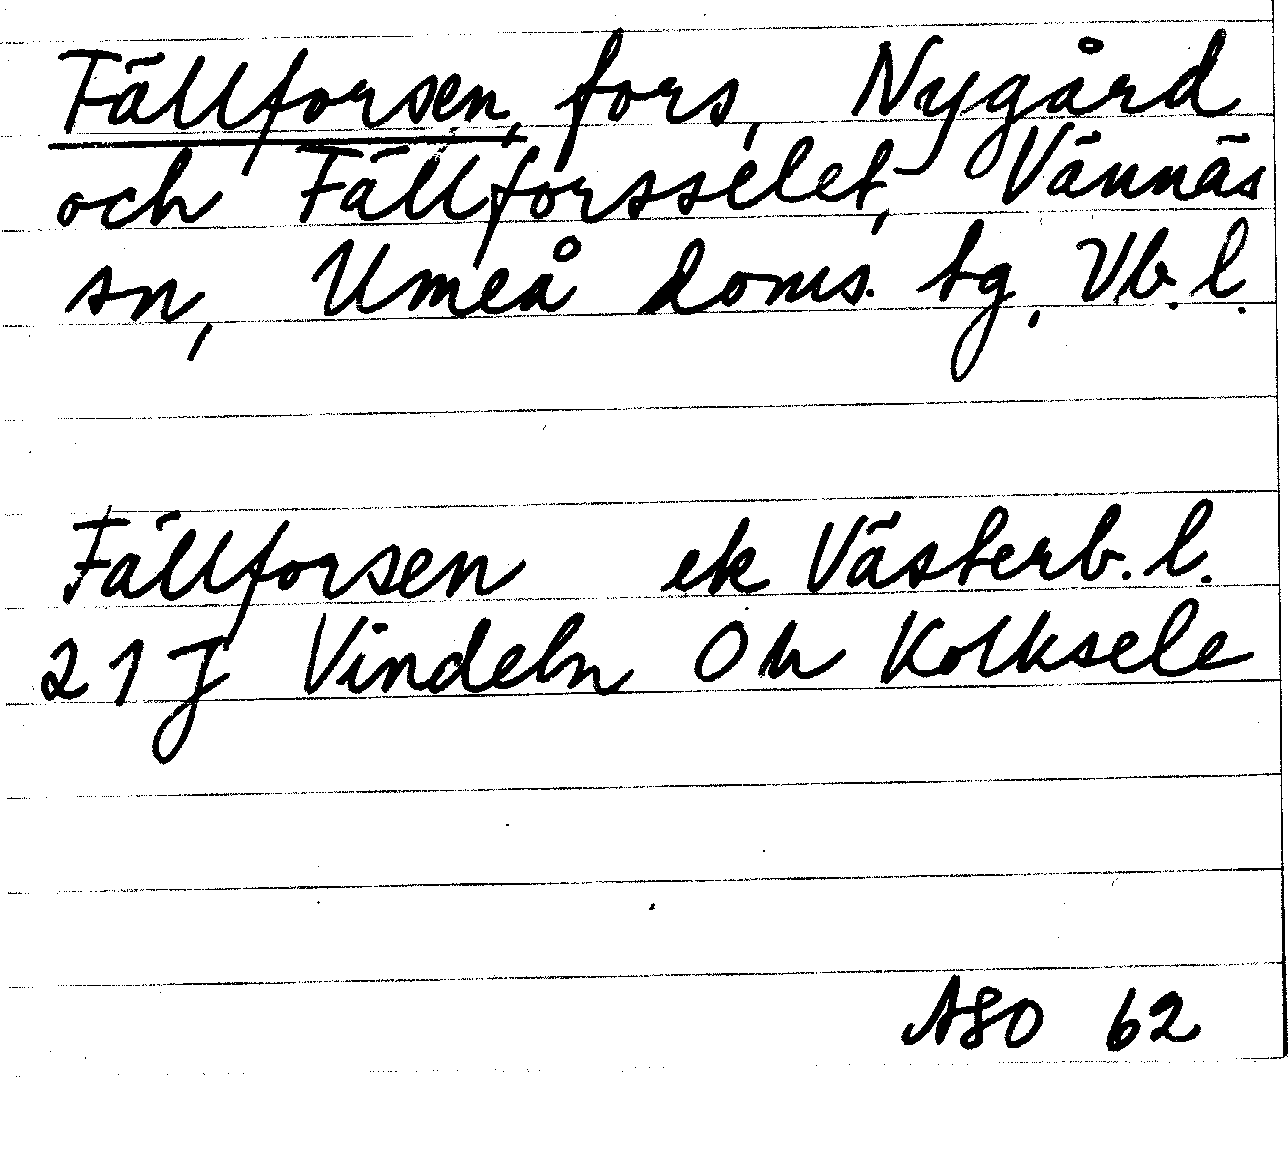 Fällforsen, fors, Nygård
och Fällforsselet, Vännäs
sn, Umeå doms. tg, Vb. l.
Fällforsen ek Västerb. l.
21 J Vindeln OK Kolksele
ASO 62